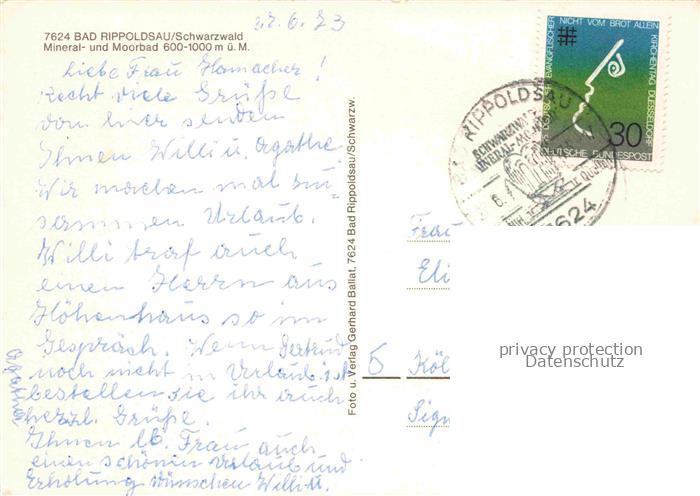 27.6.73
7624 BAD RIPPOLDSAU/Schwarzwald
Mineral- und Moorbad 600-1000 m ü. M.
liebe Frau Hamacher!
recht viele Grüße
von hier senden
Ihnen Willi u. Agathe
Wir machen mal zu-
sammen Urlaub.
Willi traf auch
einen Herrn aus
Höhenhaus so im
Gespräch. Wenn Gertrud
noch nicht in Urlaub ist
bestellen sie ihr auch
herzl. Grüße.
Ihnen lb. Frau auch
einen schönen Urlaub und
Erholung wünschen Willi u.
Agathe
Foto u. Verlag Gerhard Ballat, 7624 Bad Rippoldsau/Schwarzw.
NICHT VOM BROT ALLEIN
DEUTSCHER EVANGELISCHER
KIRCHENTAG DUESSELDORF
30
DEUTSCHE BUNDESPOST
RIPPOLDSAU
SCHWARZWALD
MINERAL-MOOR
7624
Frau
Eli
5 Köl
Sign
privacy protection
Datenschutz